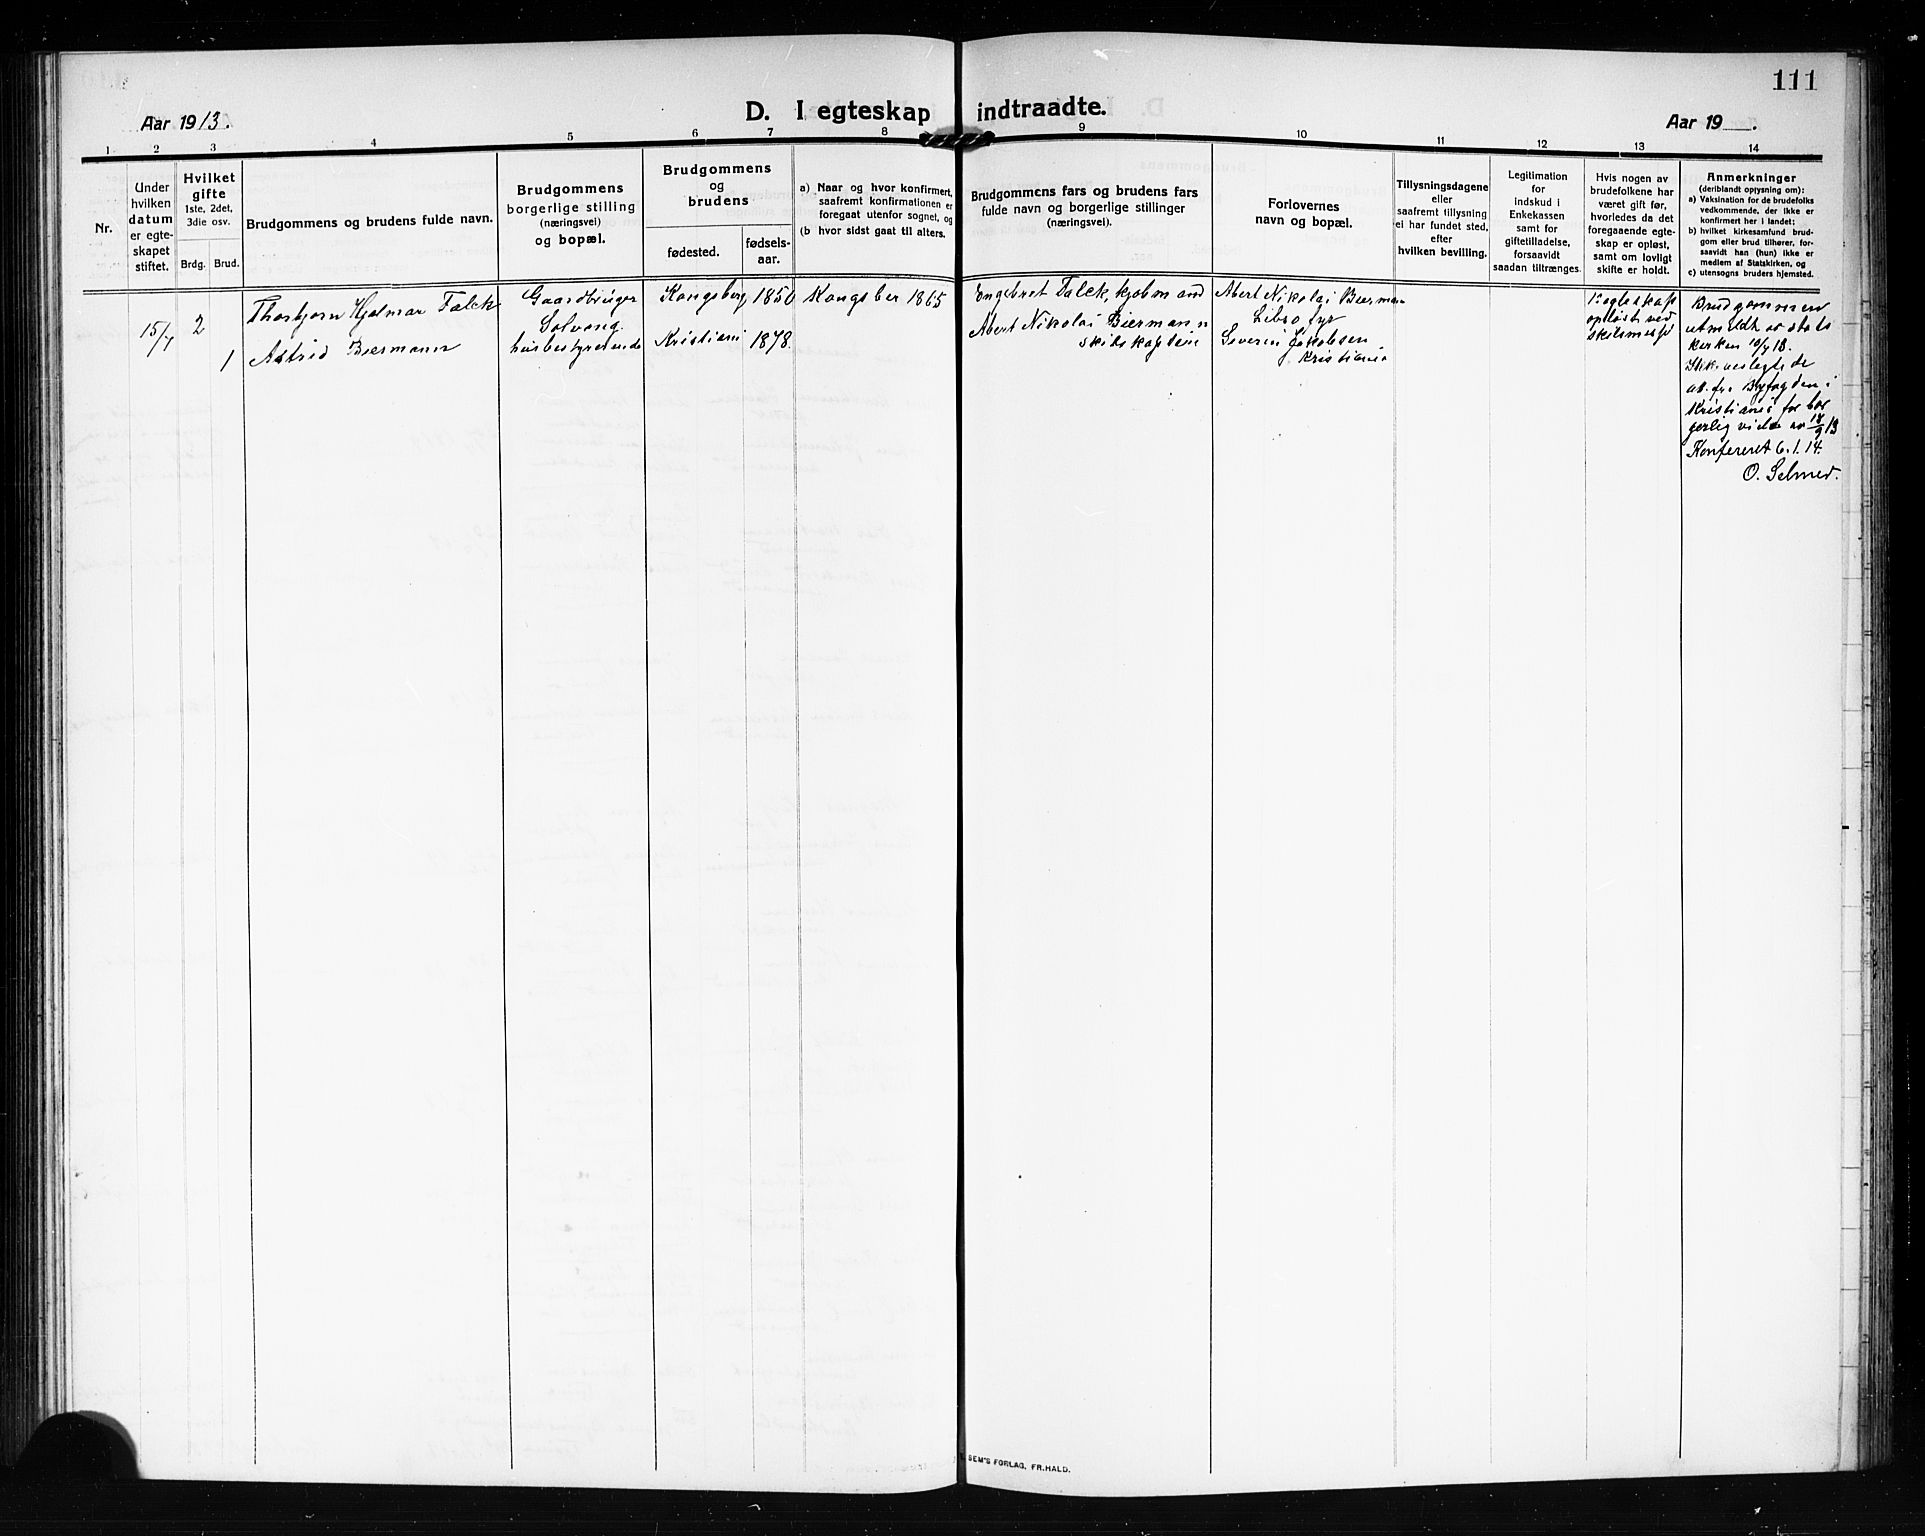 111
Aar 1913.
D. I egteskap indtraadte.
Aar 19 .
1 2 3 4 5 6 7 8 9 10 11 12 13 14
Nr.
Under
hvilken
datum
er egte-
skapet
stiftet.
Hvilket
gifte
1ste, 2det,
3die osv.
Brdg. Brud.
Brudgommens og brudens fulde navn.
Brudgommens
borgerlige stilling
(næringsvei)
og bopæl.
Brudgommens
og
brudens
fødested.
fødsels-
aar.
a) Naar og hvor konfirmert,
saafremt konfirmationen er
foregaat utenfor sognet, og
(b hvor sidst gaat til alters.
Brudgommens fars og brudens fars
fulde navn og borgerlige stillinger
(næringsvei).
Forlovernes
navn og bopæl.
Tillysningsdagene
eller
saafremt tillysning
ei har fundet sted,
efter
hvilken bevilling.
Legitimation
for
indskud i
Enkekassen
samt for
giftetilladelse,
forsaavidt
saadan tiltrænges.
Hvis nogen av
brudefolkene har
været gift før,
hvorledes da det
foregaaende egte-
skap er opløst,
samt om lovligt
skifte er holdt.
Anmerkninger
(deriblandt oplysning om):
a) Vaksination for de brudefolks
vedkommende, der ikke er
konfirmert her i landet;
b) hvilket kirkesamfund brud-
gom eller brud tilhører, for-
saavidt han (hun) ikke er
medlem af Statskirken, og
c) utensogns bruders hjemsted.
15/7
2
1
Thorbjørn Hjalmar Falck
Astrid Biermann
Gaardbruger
Solvang
husbestyrerinde
Kongsberg 1850
Kristiani 1878
Kongsber 1865
Engebret Falck kjøbmand
Albert Nikolai Biermann
skibskaptein
Albert Nikolai Bierman
Libro fyr
Severin Jakobsen
Kristiania
1ste egteskap
opløst ved
skilsmesse
Brudgommen
utmeldt av stats
kirken 10/7 13.
Byfogden i
Kristiania for bor
gerlig vielse av 18/9 13
Konfereret 6.1.14.
O. Selmer.
SEM'S FORLAG, FR.HALD.